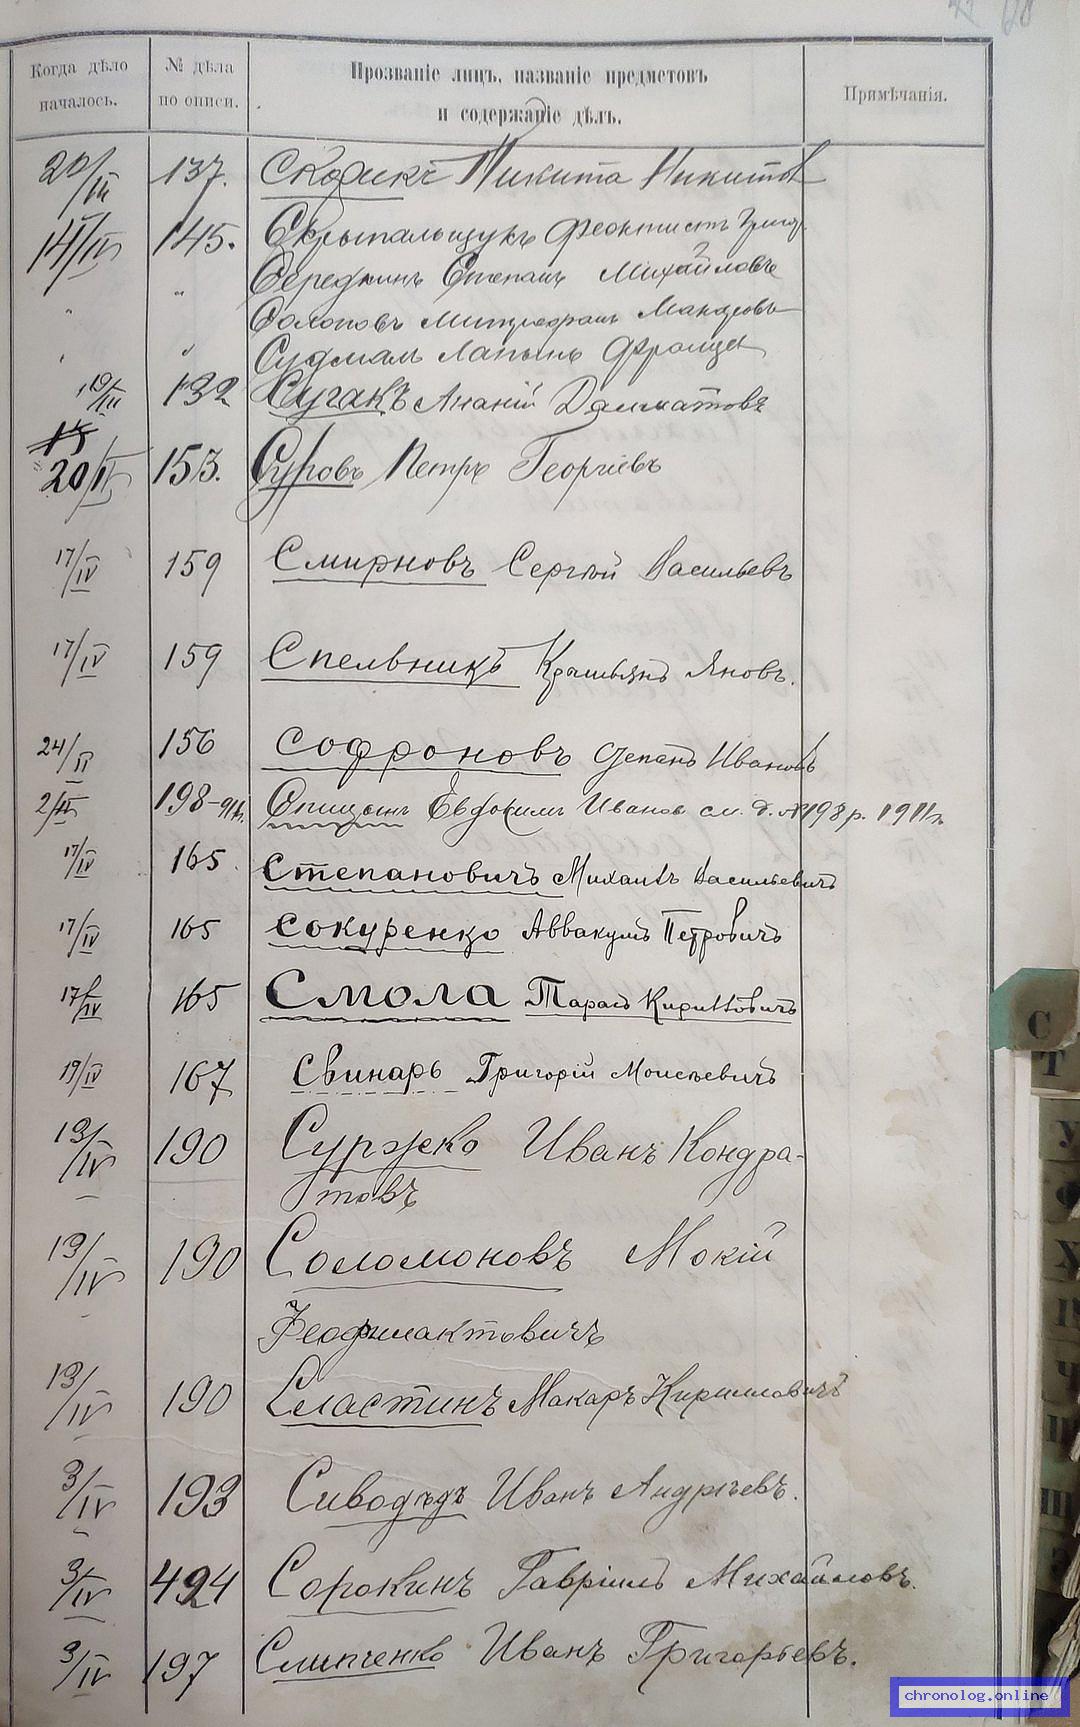 Когда дѣло началось.
№ дѣла по описи.
Прозваніе лицъ, названіе предметовъ и содержаніе дѣлъ.
Примѣчанія.
20/III 137. Скодикъ Никита Никитов
14/IV 145. Скрыпальщукъ Феоктистъ Григор.
" Середкинъ Степанъ Михайловъ
" " Солоповъ Митрофанъ
" " Францъ
19/III 132 Сугакъ Ананій Далматовъ
20/IV 153. Суровъ Петръ Георгіевъ
17/IV 159 Смирновъ Сергѣй Васильевъ
17/IV 159 Спельникъ Яновъ.
24/II 156 Софроновъ Степанъ Ивановъ
2/III 198-911г. Спицынъ Евдокимъ Ивановъ см. д. №198 р. 1911г.
17/IV 165. Степановичъ Михаилъ Васильевичъ
17/IV 165 Сокуренко Аввакумъ Петровичъ
17/IV 165 Смола Тарасъ Кирилловичъ
19/IV 167 Свинарь Григорій Моисѣевичъ
13/IV 190 Суржко Иванъ Кондра-
товъ
13/IV 190 Соломоновъ Мокій
Феофилактовичъ
13/IV 190 Сластинъ Макаръ Кирилловичъ
3/IV 193 Сиводѣдъ Иванъ Андрѣевъ.
3/IV 494 Сорокинъ Гавріилъ Михайловъ.
3/IV 197 Слипченко Иванъ Григорьевъ.
С
Т
У
Ф
Х
Ч
Ш
chronolog.online